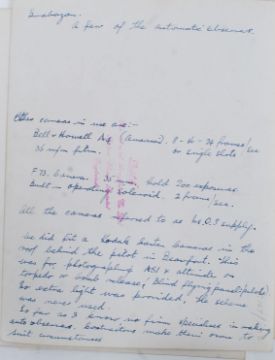 A few of the automatic observers.
Other cameras in use are:-
Bell & Howell (America). 8-16-24 frames/sec
35 m/m film. or single shots
F.73. Camera. 35 m/m. hold 200 exposures
Built-in operating solenoid. 2 frames/sec.
All the cameras supposed to be supply.
We did fit a Kodak Camera in the
roof behind the pilot in Beaufort. This
was for photographing ASI & altitude on
torpedo or bomb release, (blind flying panel (pilots).
No extra light was provided. The scheme
was never used.
So far as I know no firm specialises in making
auto observers. Contractors make their own to
suit circumstances